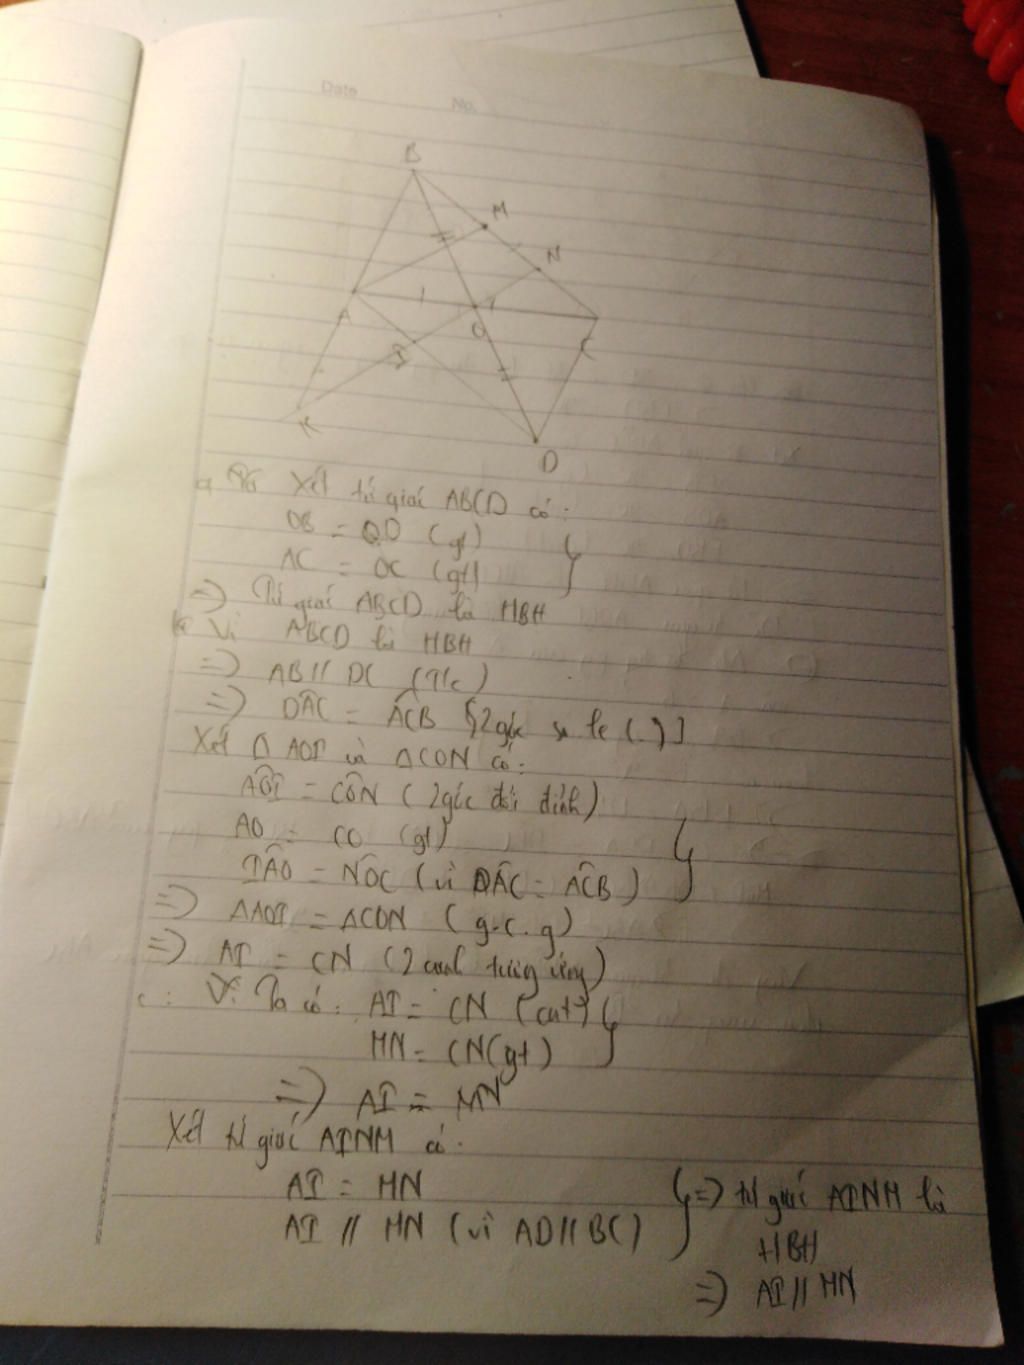 Date
No.
B
M
N
A
O
I
C
K
D
a Xét tứ giác ABCD có:
OB = OD (gt)
AC = OC (gt)
=> Tứ giác ABCD là HBH
Vì ABCD là HBH
=> AB // DC (T/c)
=> DÂC = ACB [2 góc so le (..)]
Xét Δ AOI và ΔCON có:
AOI = CON (2 góc đối đỉnh)
AO = CO (gt)
IAO = NOC (vì DAC = ACB)
=> ΔAOI = ΔCON (g.c.g)
=> AI = CN (2 cạnh tương ứng)
c: Ta có: AI = CN (cmt)
MN = CN (gt)
=> AI = MN
Xét tứ giác AINM có:
AI = MN
=> tứ giác AINM là
AI // MN (vì AD // BC)
HBH
=> AI // MN